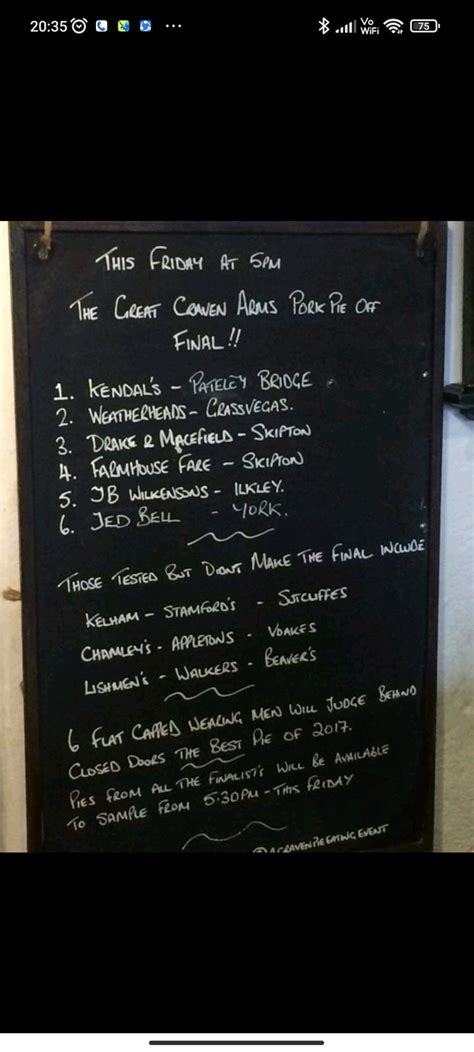 20:35
Vo
WiFi
75
THIS FRIDAY AT 5PM
THE GREAT CRAVEN ARMS PORK PIE OFF
FINAL!!
1. KENDAL'S - PATELEY BRIDGE
2. WEATHERHEADS - CRASSVEGAS.
3. DRAKE & MACEFIELD - SKIPTON
4. FARMHOUSE FARE - SKIPTON
5. JB WILKENSONS - ILKLEY.
6. JED BELL - YORK.
THOSE TESTED BUT DIDNT MAKE THE FINAL INCLUDE
KELHAM - STAMFORD'S - SUTCLIFFES
CHAMLEY'S - APPLETONS - VOAKES
LISHMEN'S - WALKERS - BEAVER'S
6 FLAT CAPPED WEARING MEN WILL JUDGE BEHIND
CLOSED DOORS THE BEST PIE OF 2017.
PIES FROM ALL THE FINALIST'S WILL BE AVAILABLE
TO SAMPLE FROM 5.30PM - THIS FRIDAY
EATING EVENT